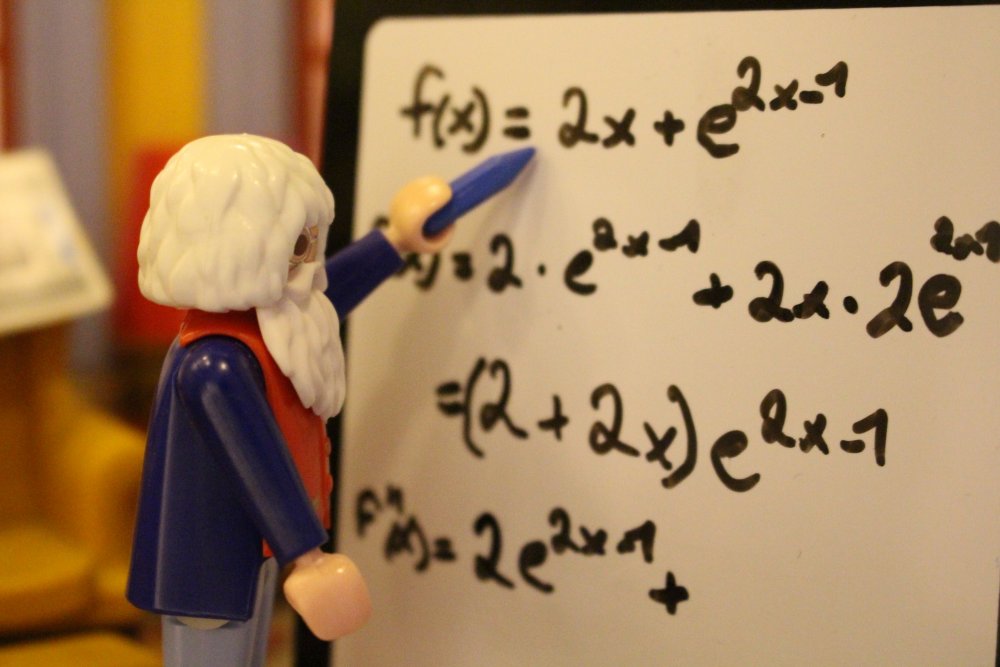 f(x) = 2x + e^{2x-1}
(x) = 2 · e^{2x-1} + 2x · 2e^{2x-1}
= (2 + 2x) e^{2x-1}
f''(x) = 2e^{2x-1} +